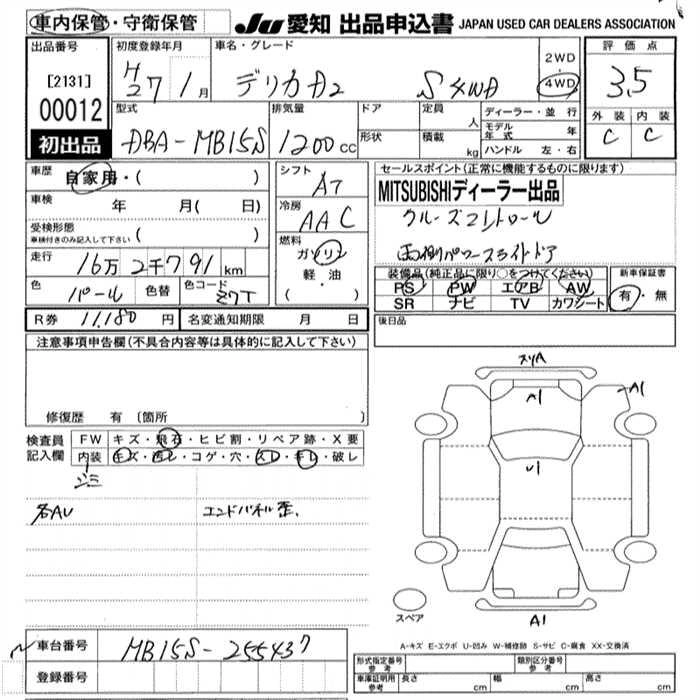 車内保管・守衛保管
JU 愛知 出品申込書 JAPAN USED CAR DEALERS ASSOCIATION
出品番号 初度登録年月 車名・グレード 2WD・4WD 評価点
[2131] H27 1月 デリカD2 S 4WD 3.5
00012
型式 排気量 ドア 定員 人 ディーラー・並行 外装 内装
初出品 DBA-MB15S 1200cc 形状 積載 kg モデル年式 年 C C
ハンドル 左・右
車歴 自家用・( ) シフト AT セールスポイント(正常に機能するものに限ります)
車検 年 月( 日) 冷房 AAC MITSUBISHIディーラー出品
受検形態 ( ) 燃料 クルーズコントロール
車検付きのみ記入して下さい ガソリン 両側パワースライドドア
走行 16万2千791km 軽・油 装備品(純正品に限り○をつけてください) 新車保証書
色 パール 色替 色コード Z7T ( ) PS PW エアB AW 有・無
SR ナビ TV カワシート
R券 11,180円 名変通知期限 月 日 後日品
注意事項申告欄(不具合内容等は具体的に記入して下さい)
スリA
A1 A1
修復歴 有 〔箇所
検査員 FW キズ・飛石・ヒビ割・リペア跡・X要
記入欄 内装 キズ・汚レ・コゲ・穴・スレ・キレ・破レ
U1
ジミ
右AU エンドパネル歪、
スペア A1
A-キズ E-エクボ U-凹み W-補修跡 S-サビ C-腐食 XX-交換済
車台番号 MB15S-255437
登録番号
形式指定番号 参考 類別区分番号 参考
車庫証明用 参考 長さ cm 幅 cm 高さ cm